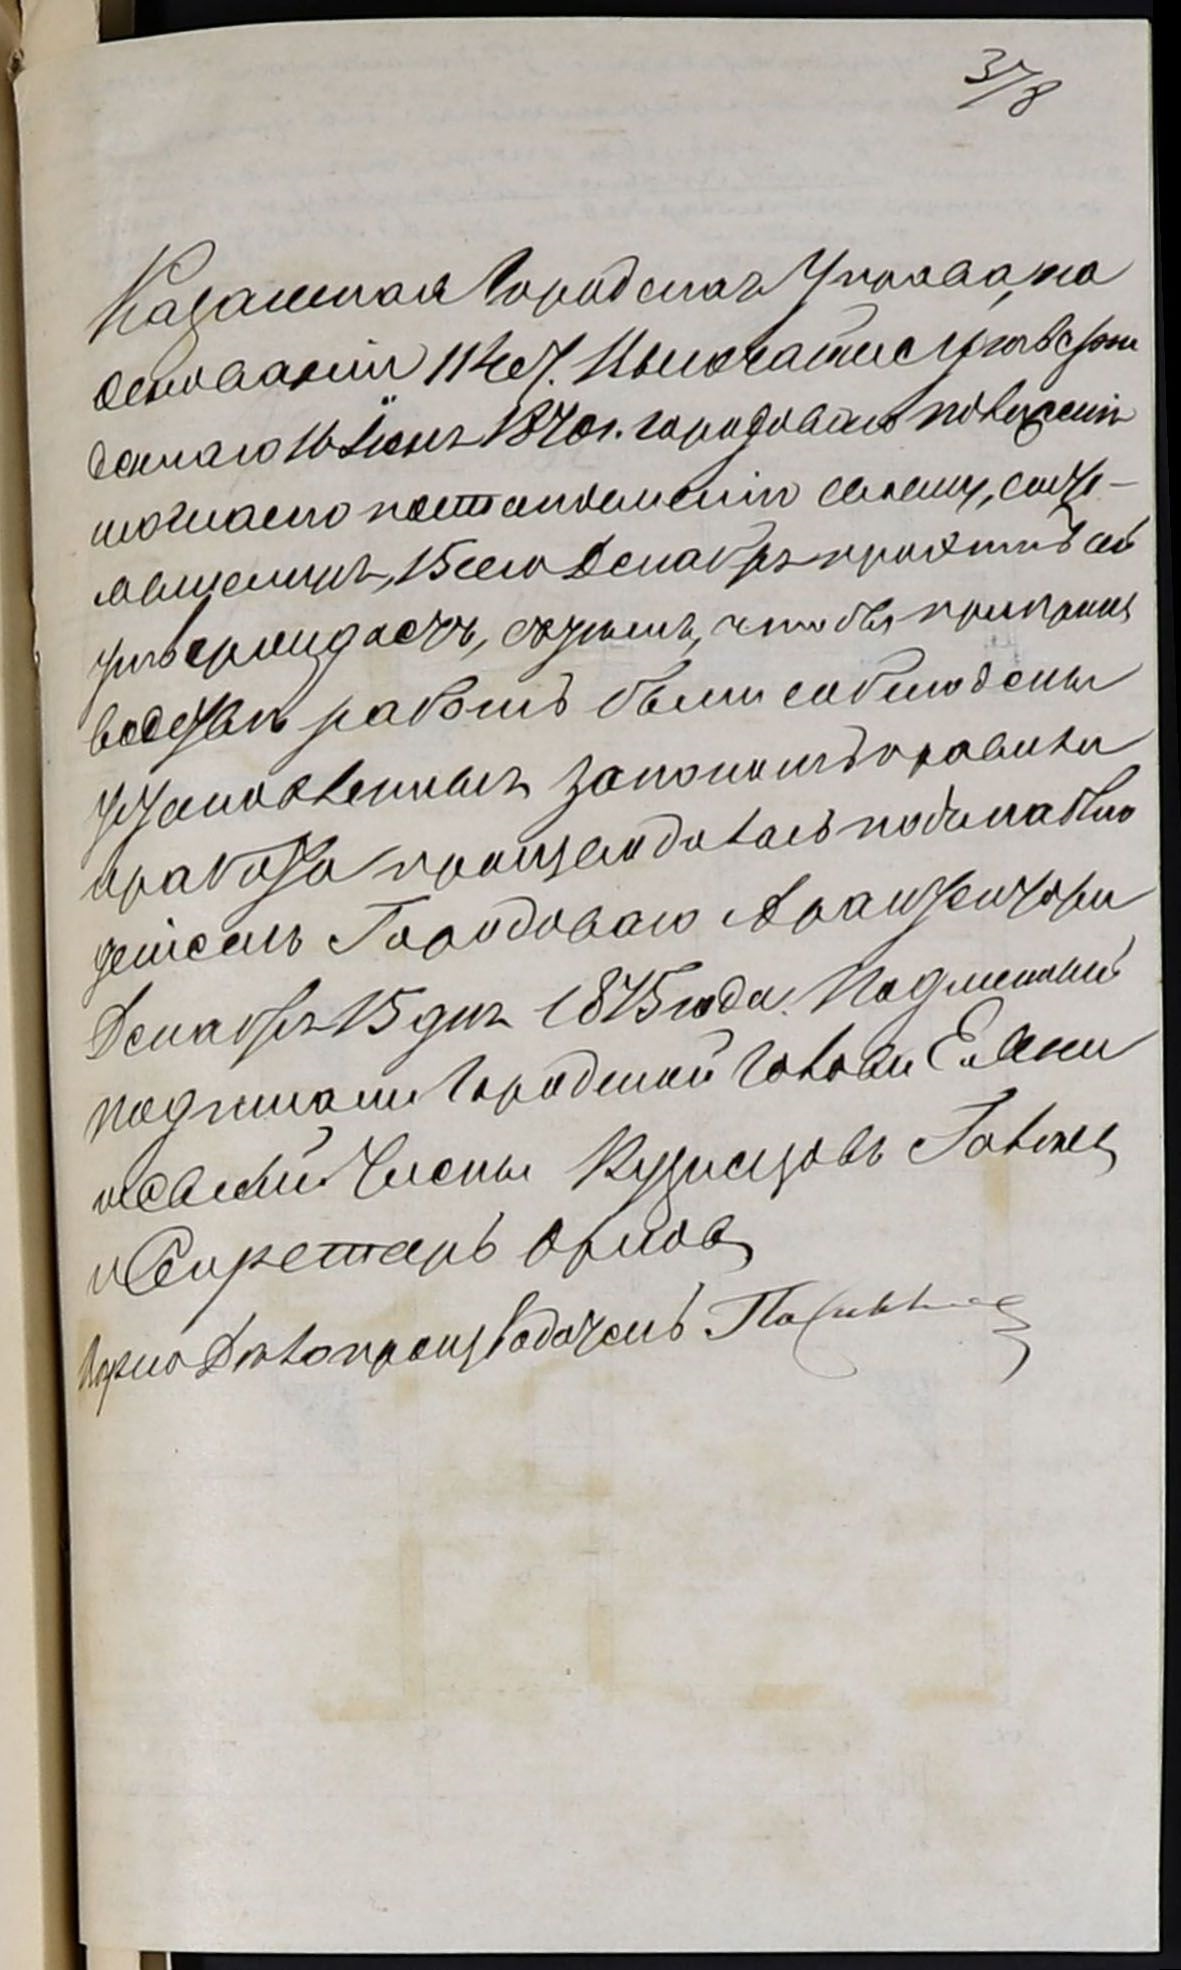 37/8
Казанская Городская Управа, на
основаніи 114 ст. Высочайше утвержж
деннаго 16 Іюня 1870 г. городоваго положенія
и согласно постановленію своему, состо-
явшемуся, 15 сего Декабря проэктъ сей
утверждаетъ, съ тѣмъ, чтобы при произ
водствѣ работъ были соблюдены
установленныя закономъ правила
и работа производилась подъ наблю
деніемъ Городоваго Архитектора
Декабря 15 дня 1875 года. Подлинный
подписали Городской Голова Е. Яни
шевскій Члены Кузнецовъ
и Секретарь Орловъ
Вѣрно Дѣлопроизводитель